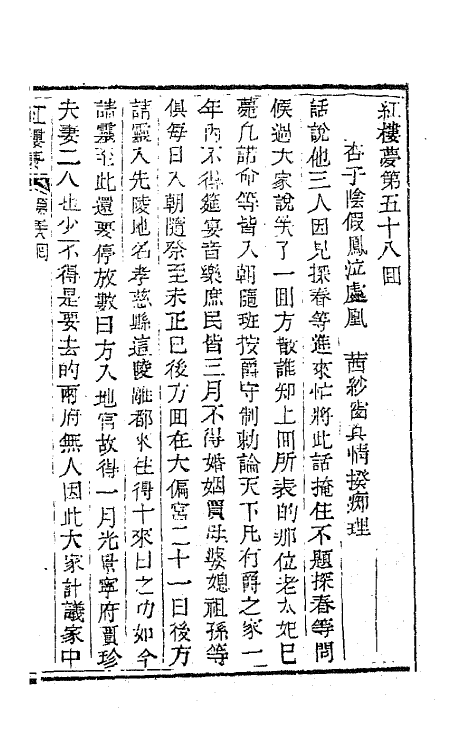 紅樓夢第五十八囬
杏子陰假鳳泣虛凰　茜紗窗真情揆痴理
話說他三人因見探春等進來忙將此話掩住不題探春等問
候過大家說笑了一囬方散誰知上囬所表的那位老太妃已
薨凡誥命等皆入朝隨班按爵守制勅諭天下凡有爵之家一
年內不得筵宴音樂庶民皆三月不得婚姻賈母婆媳祖孫等
俱每日入朝隨祭至未正已後方囬在大偏宮二十一日後方
請靈入先陵地名孝慈縣這陵離都來往得十來日之功如今
請靈至此還要停放數日方入地宮故得一月光景寧府賈珍
夫妻二人也少不得是要去的兩府無人因此大家計議家中
紅樓夢